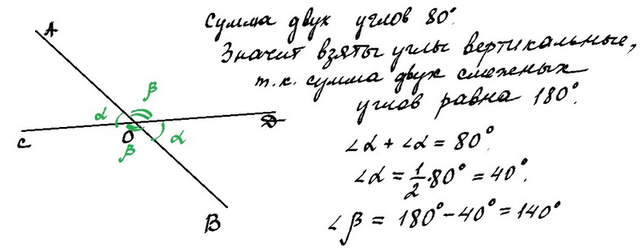 Сумма двух углов 80°.
Значит взяты углы вертикальные,
т.к. сумма двух смежных
углов равна 180°.
∠α + ∠α = 80°.
∠α = 1/2·80° = 40°.
∠β = 180° - 40° = 140°
A
β
α
C
O
D
β
α
B